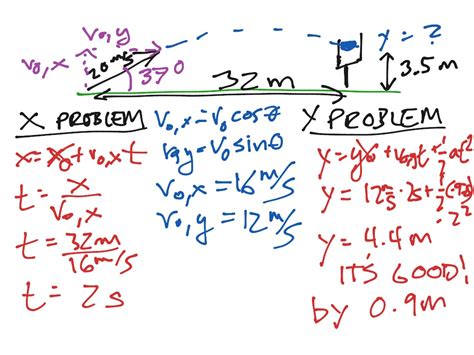 v₀,y
v₀,x
20 m/s
37°
32m
y = ?
3.5m
X PROBLEM
x = x₀ + v₀,x t
t = x / v₀,x
t = 32m / 16 m/s
t = 2s
v₀,x = v₀ cosθ
v₀,y = v₀ sinθ
v₀,x = 16 m/s
v₀,y = 12 m/s
Y PROBLEM
y = y₀ + v₀,y t + 1/2 at²
y = 12 m/s · 2s + 1/2 (-9.8) · 2²
y = 4.4 m
IT'S GOOD!
by 0.9m